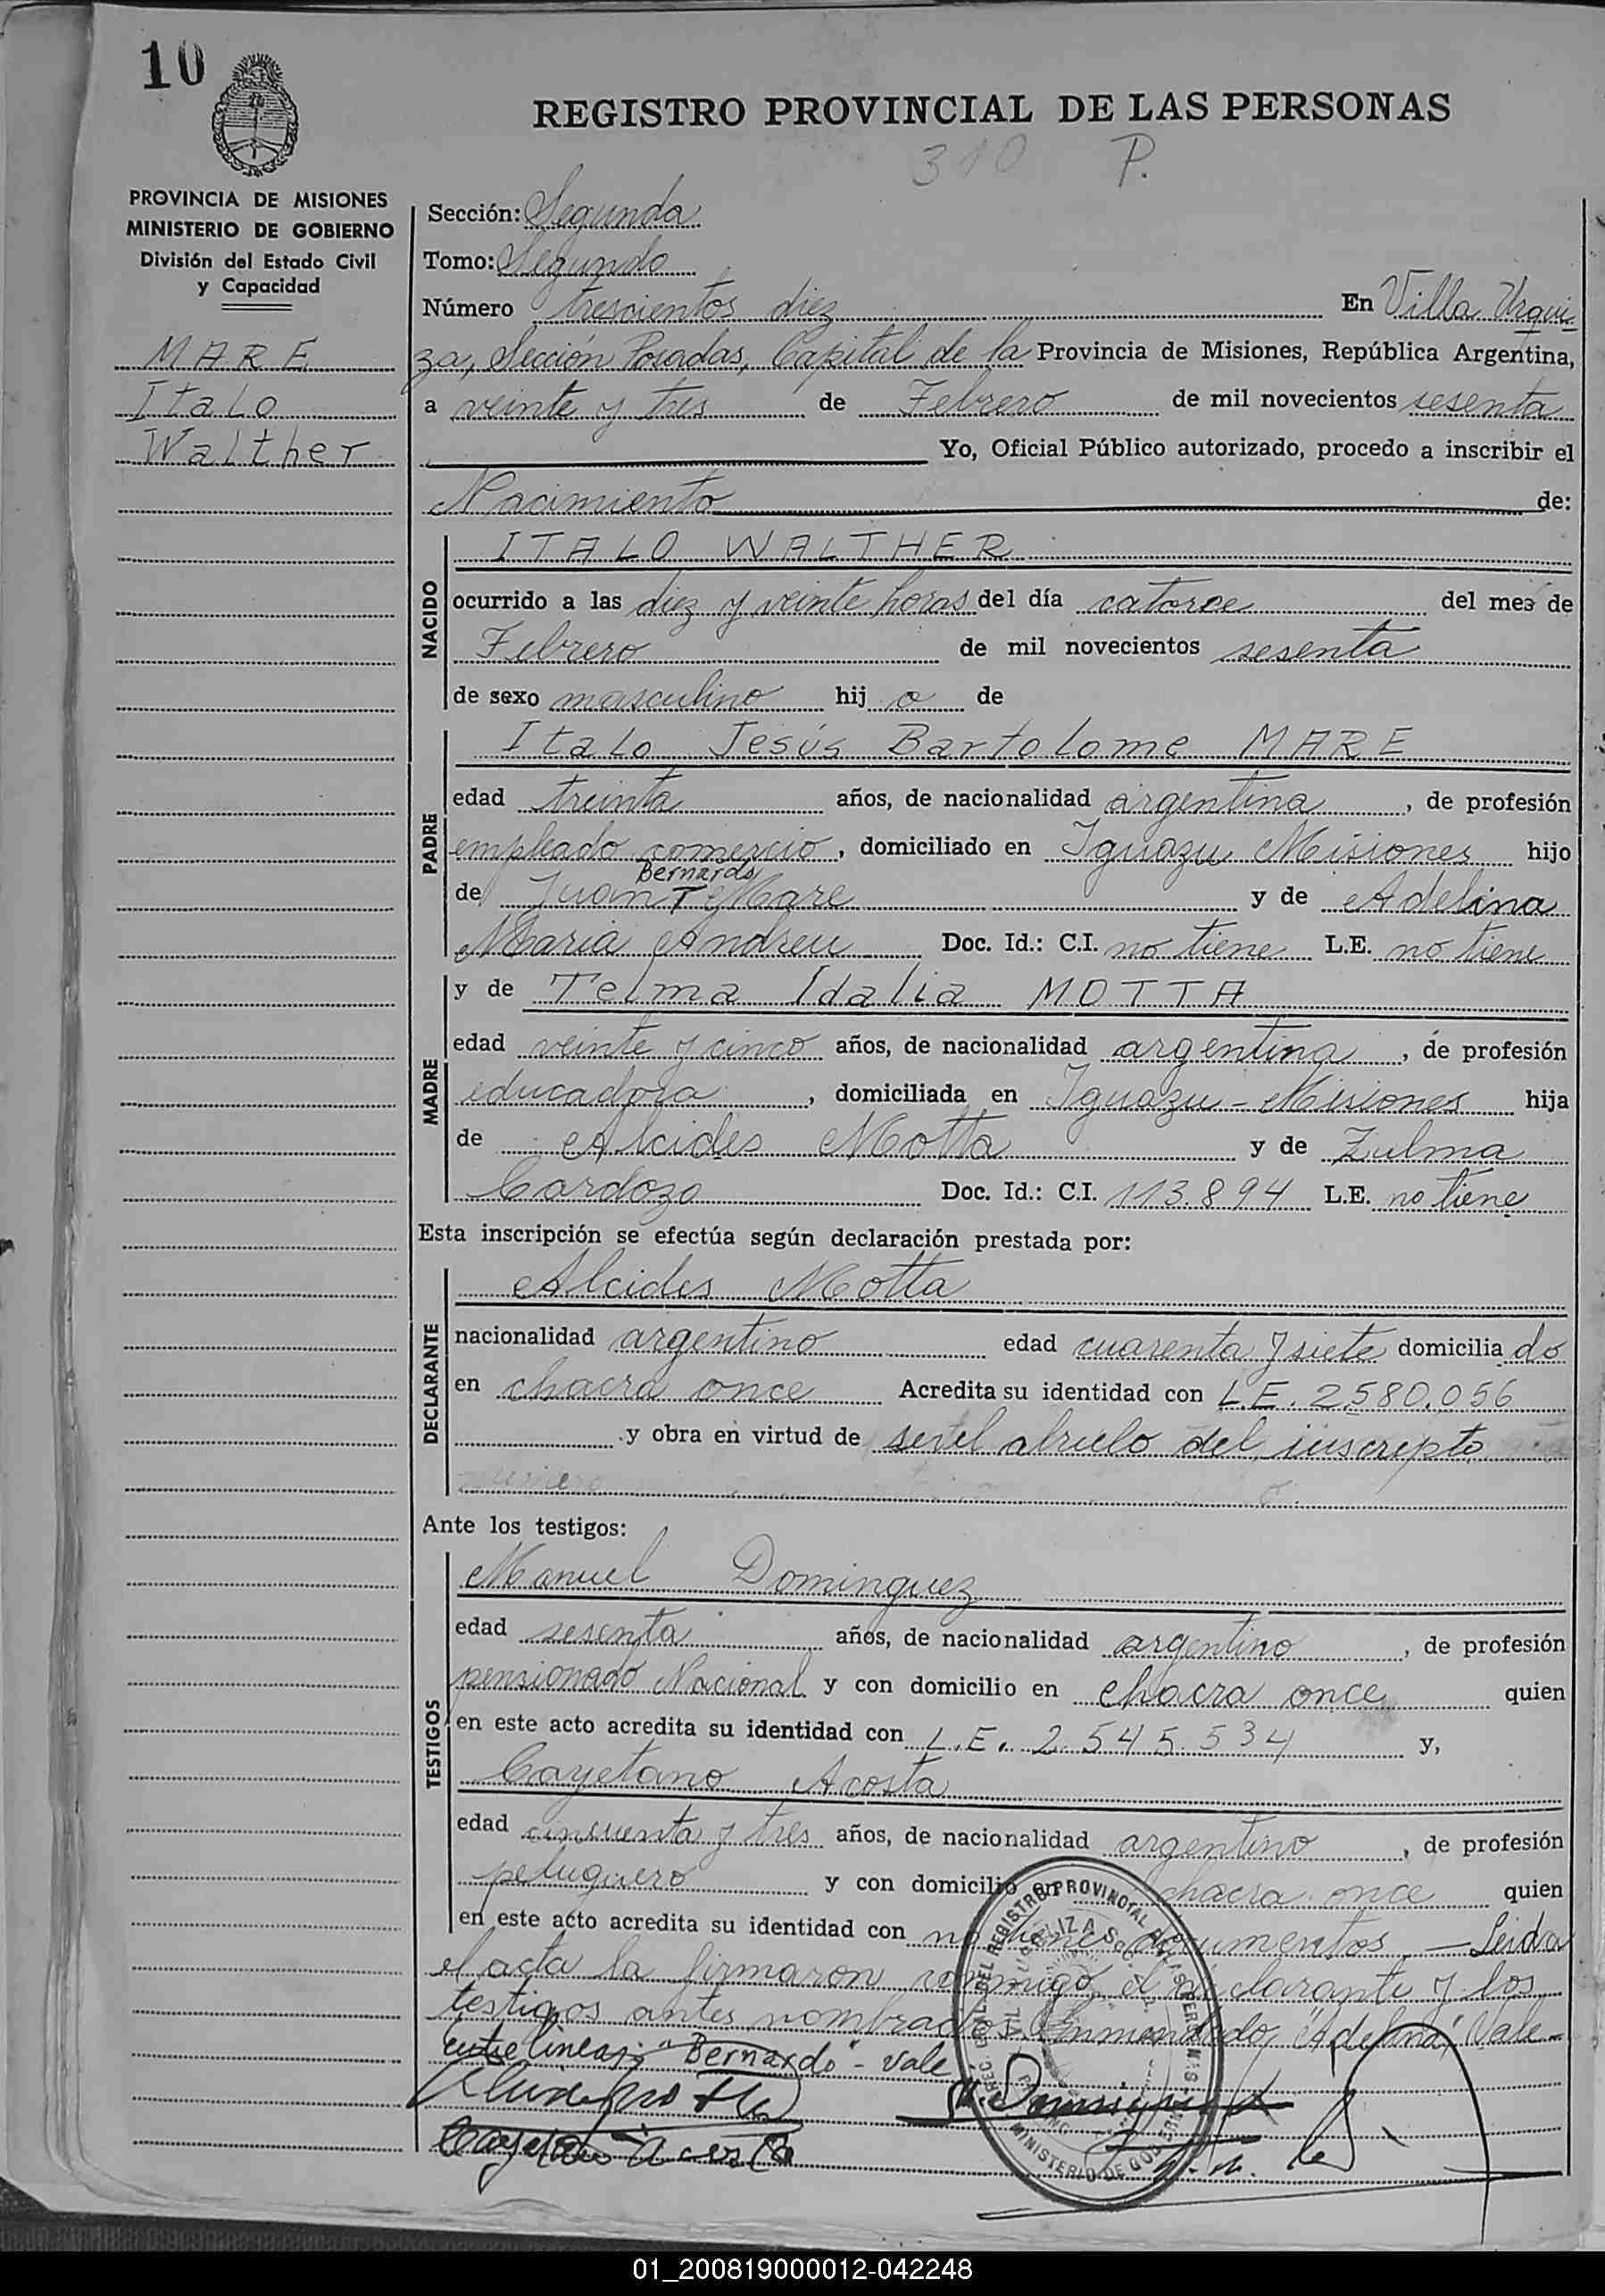 10
REGISTRO PROVINCIAL DE LAS PERSONAS
310 P.
PROVINCIA DE MISIONES
MINISTERIO DE GOBIERNO
División del Estado Civil
y Capacidad
MARE
Italo
Walther
Sección: Segunda
Tomo: Segundo
Número trescientos diez En Villa Urqui
za, Sección Posadas, Capital de la Provincia de Misiones, República Argentina,
a veinte y tres de Febrero de mil novecientos sesenta
Yo, Oficial Público autorizado, procedo a inscribir el
Nacimiento de:
NACIDO
ITALO WALTHER
ocurrido a las diez y veinte horas del día catorce del mes de
Febrero de mil novecientos sesenta
de sexo masculino hij o de
PADRE
Italo Jesús Bartolome MARE
edad treinta años, de nacionalidad argentina, de profesión
empleado comercio, domiciliado en Iguazu Misiones hijo
Bernardo
de Juan T Mare y de Adelina
Maria Andreu Doc. Id.: C.I. no tiene L.E. no tiene
MADRE
y de Telma Idalia MOTTA
edad veinte y cinco años, de nacionalidad argentina, de profesión
educadora, domiciliada en Iguazu - Misiones hija
de Alcides Motta y de Zulma
Cardozo Doc. Id.: C.I. 113.894 L.E. no tiene
Esta inscripción se efectúa según declaración prestada por:
DECLARANTE
Alcides Motta
nacionalidad argentino edad cuarenta y siete domicilia do
en chacra once Acredita su identidad con L.E. 2580.056
y obra en virtud de ser el abuelo del inscripto
Ante los testigos:
TESTIGOS
Manuel Dominguez
edad sesenta años, de nacionalidad argentino, de profesión
pensionado Nacional y con domicilio en chacra once quien
en este acto acredita su identidad con L.E. 2.545.534 y,
Cayetano Acosta
edad cincuenta y tres años, de nacionalidad argentino, de profesión
peluquero y con domicilio en chacra once quien
en este acto acredita su identidad con no tiene documentos. - Leida
el acta la firmaron conmigo, el declarante y los
testigos antes nombrados. Enmendado, "Adelina", Vale -
entre lineas: "Bernardo" - Vale
Cayetano Acosta
DEL REGISTRO PROVINCIAL DE LAS PERSONAS
MINISTERIO DE GOBIERNO
01_200819000012-042248